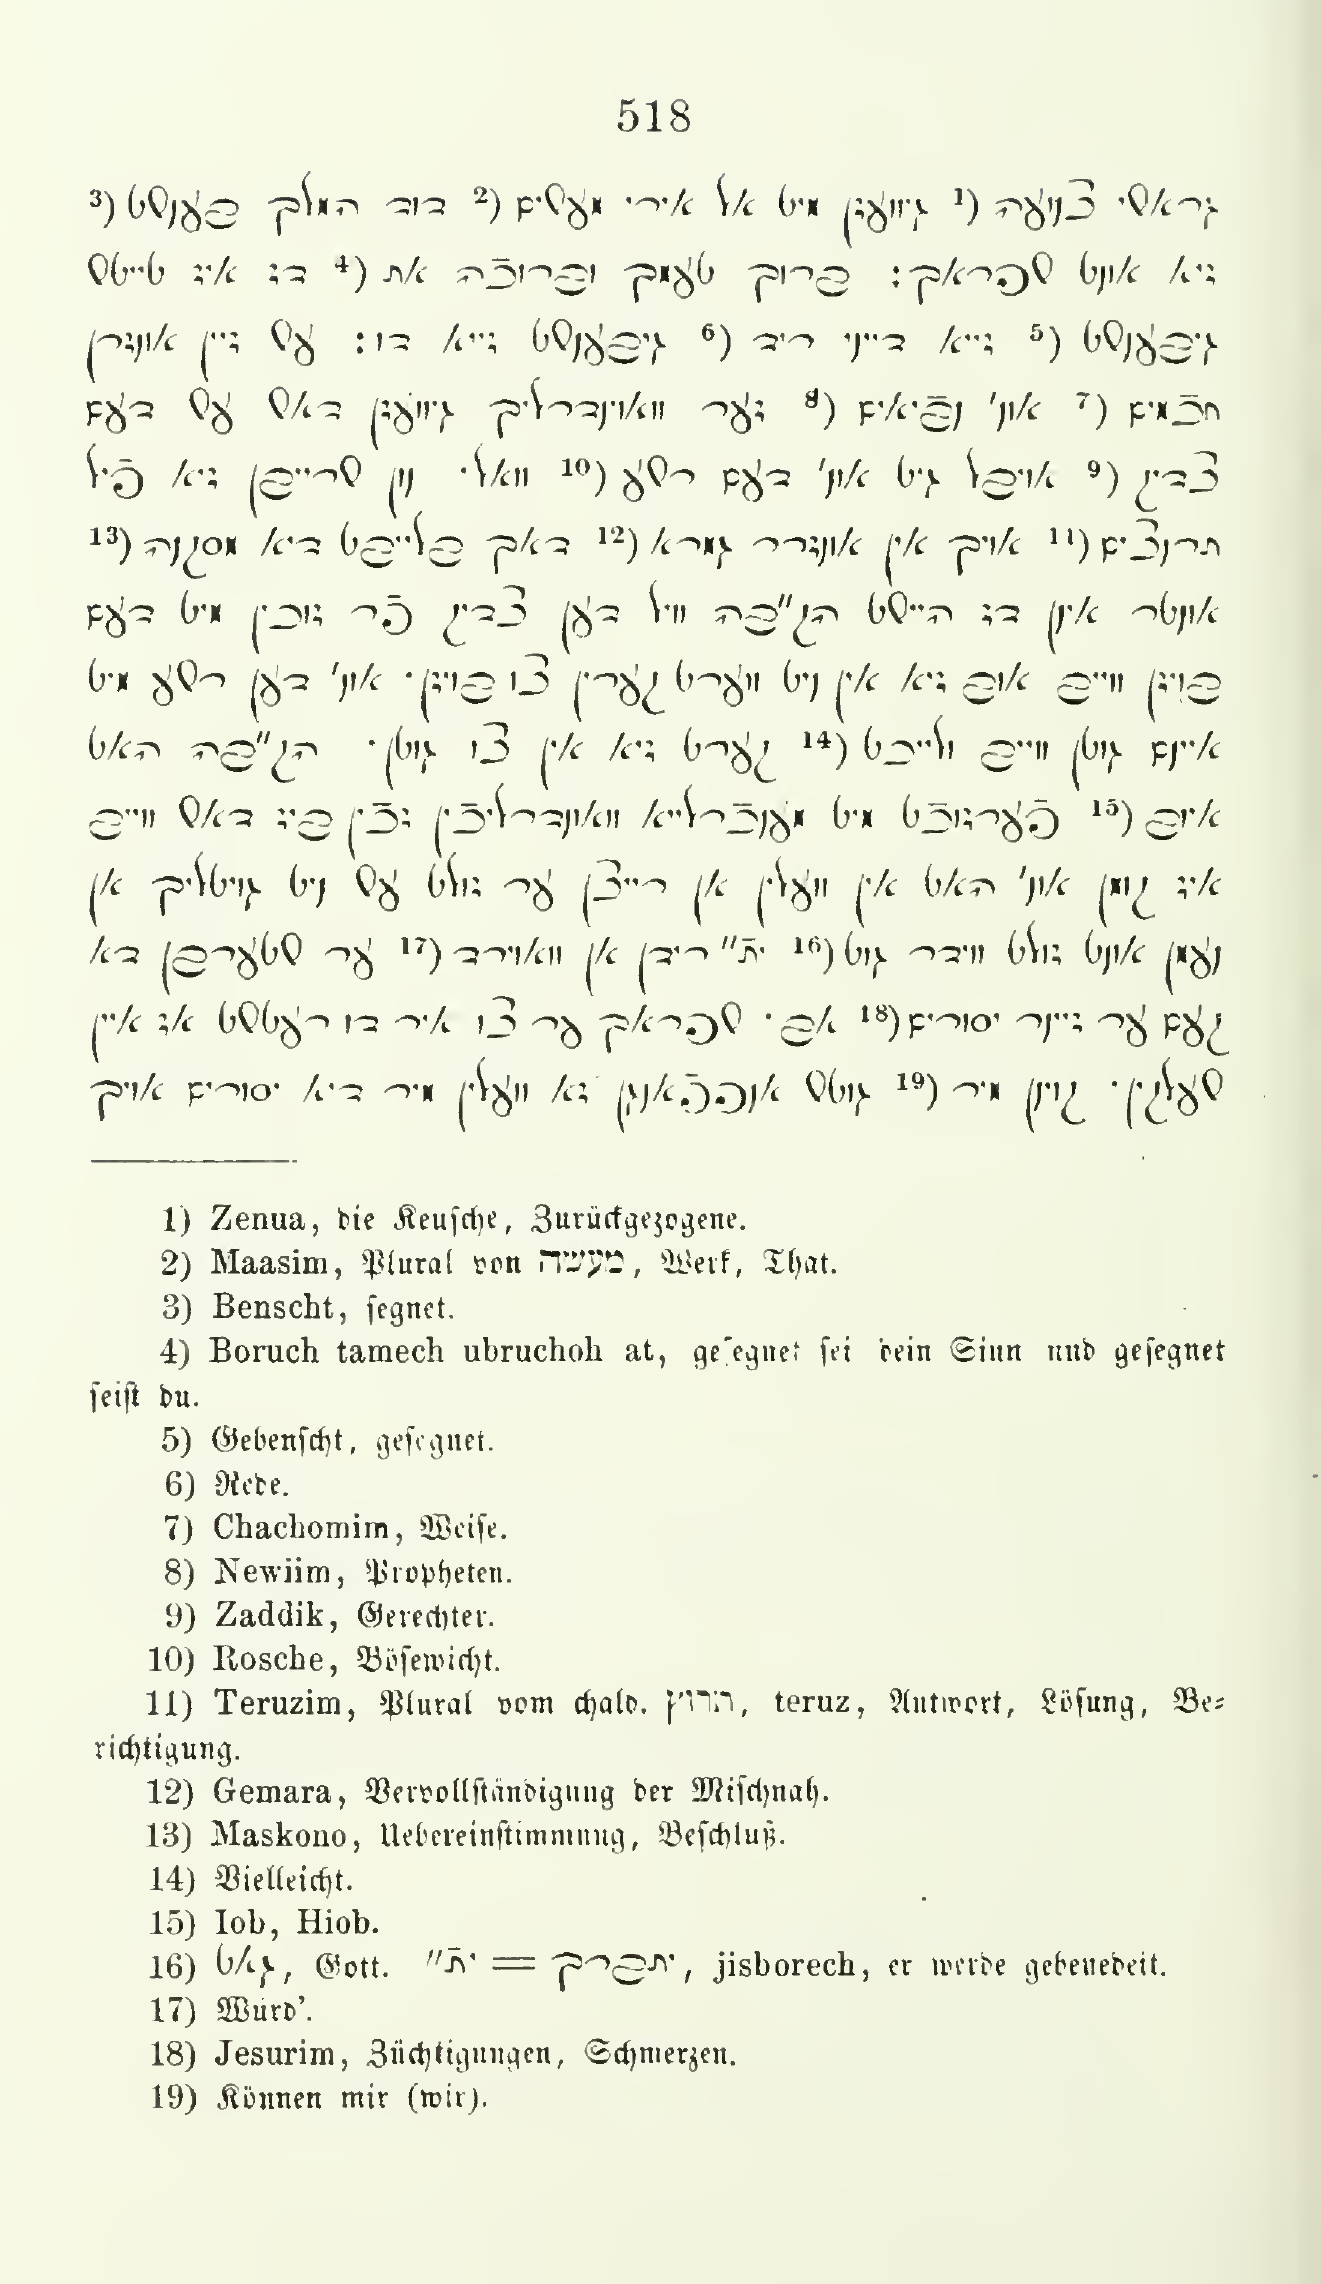 518
גראשי צנועה (1 גיוועזן מיט אל אירי מעשים (2 דוד המלך בענשט (3
זיא אונט שפראך: ברוך טעמך וברוכה את (4 דז איז טייטש
גיבענשט (5 זייא דייני ריד (6 גיבענשט זייא דו: עש זיין אונזרן
חכמים (7 אונ' נביאים (8 זער וואוינדרליך גיוועזן דאש עש דעם
צדיק (9 אויבל גיט אונ' דעם רשע (10 וואל. נון שרייבן זיא פיל
תרוצים (11 אויך אין אונזרר גמרא (12 דאך בלייבט דיא מסקנה (13
אונטר אין דז היישט הק"בה וויל דען צדיק פר זוכין מיט דעם
בויזן ווייב אוב זיא אין ניט ווערט קערין צו בויזן. אונ' דען רשע מיט
איינם גוטן ווייב ולייכט (14 קערט זיא אין צו גוטן. הק"בה האט
איוב (15 פערזוכט מיט מענכרלייא וואונדרליכן זכן ביז דאש ווייב
איז קומן אונ' האט אין וועלין אן רייצן ער זולט עש ניט גויטליך אן
נעמן אונט זולט ווידר גוט (16 ית" רידן אן וואורד (17 ער שטערבן דא
קעם ער זיינר יסורים (18 אב. שפראך ער צו איר דו רעטשט אז איין
שעלקין. קוין מיר (19 גוטש אנפפאנגן זא וועלין מיר דיא יסורים אויך
1) Zenua, die Keusche, Zurückgezogene.
2) Maasim, Plural von מעשה, Werk, That.
3) Benscht, segnet.
4) Boruch tamech ubruchoh at, gesegnet sei dein Sinn und gesegnet
seist du.
5) Gebenscht, gesegnet.
6) Rede.
7) Chachomim, Weise.
8) Newiim, Propheten.
9) Zaddik, Gerechter.
10) Rosche, Bösewicht.
11) Teruzim, Plural vom chald. תרוץ, teruz, Antwort, Lösung, Be-
richtigung.
12) Gemara, Vervollständigung der Mischnah.
13) Maskono, Uebereinstimmung, Beschluß.
14) Vielleicht.
15) Iob, Hiob.
16) גאט, Gott. ית" = יתברך, jisborech, er werde gebenedeit.
17) Würd'.
18) Jesurim, Züchtigungen, Schmerzen.
19) Können mir (wir).